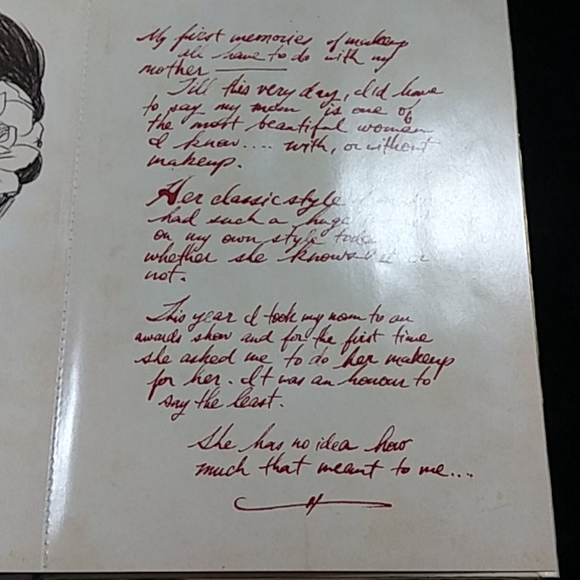 My first memories of makeup
all have to do with my
mother
Till this very day, I'd have
to say my mom is one of
the most beautiful women
I know.... with, or without
makeup.
Her classic style
had such a huge
on my own style today
whether she knows it or
not.
This year I took my mom to an
awards show and for the first time
she asked me to do her makeup
for her. It was an honour to
say the least.
She has no idea how
much that meant to me...